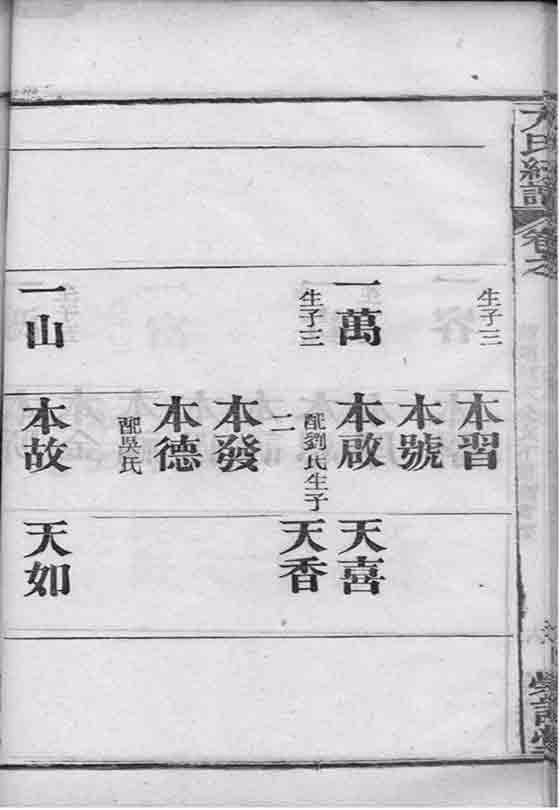 生子三
一萬
生子三
一山
本習
本號
本啟
配劉氏生子
二
本發
本德
配吳氏
本故
天喜
天香
天如
氏紀譜
卷之